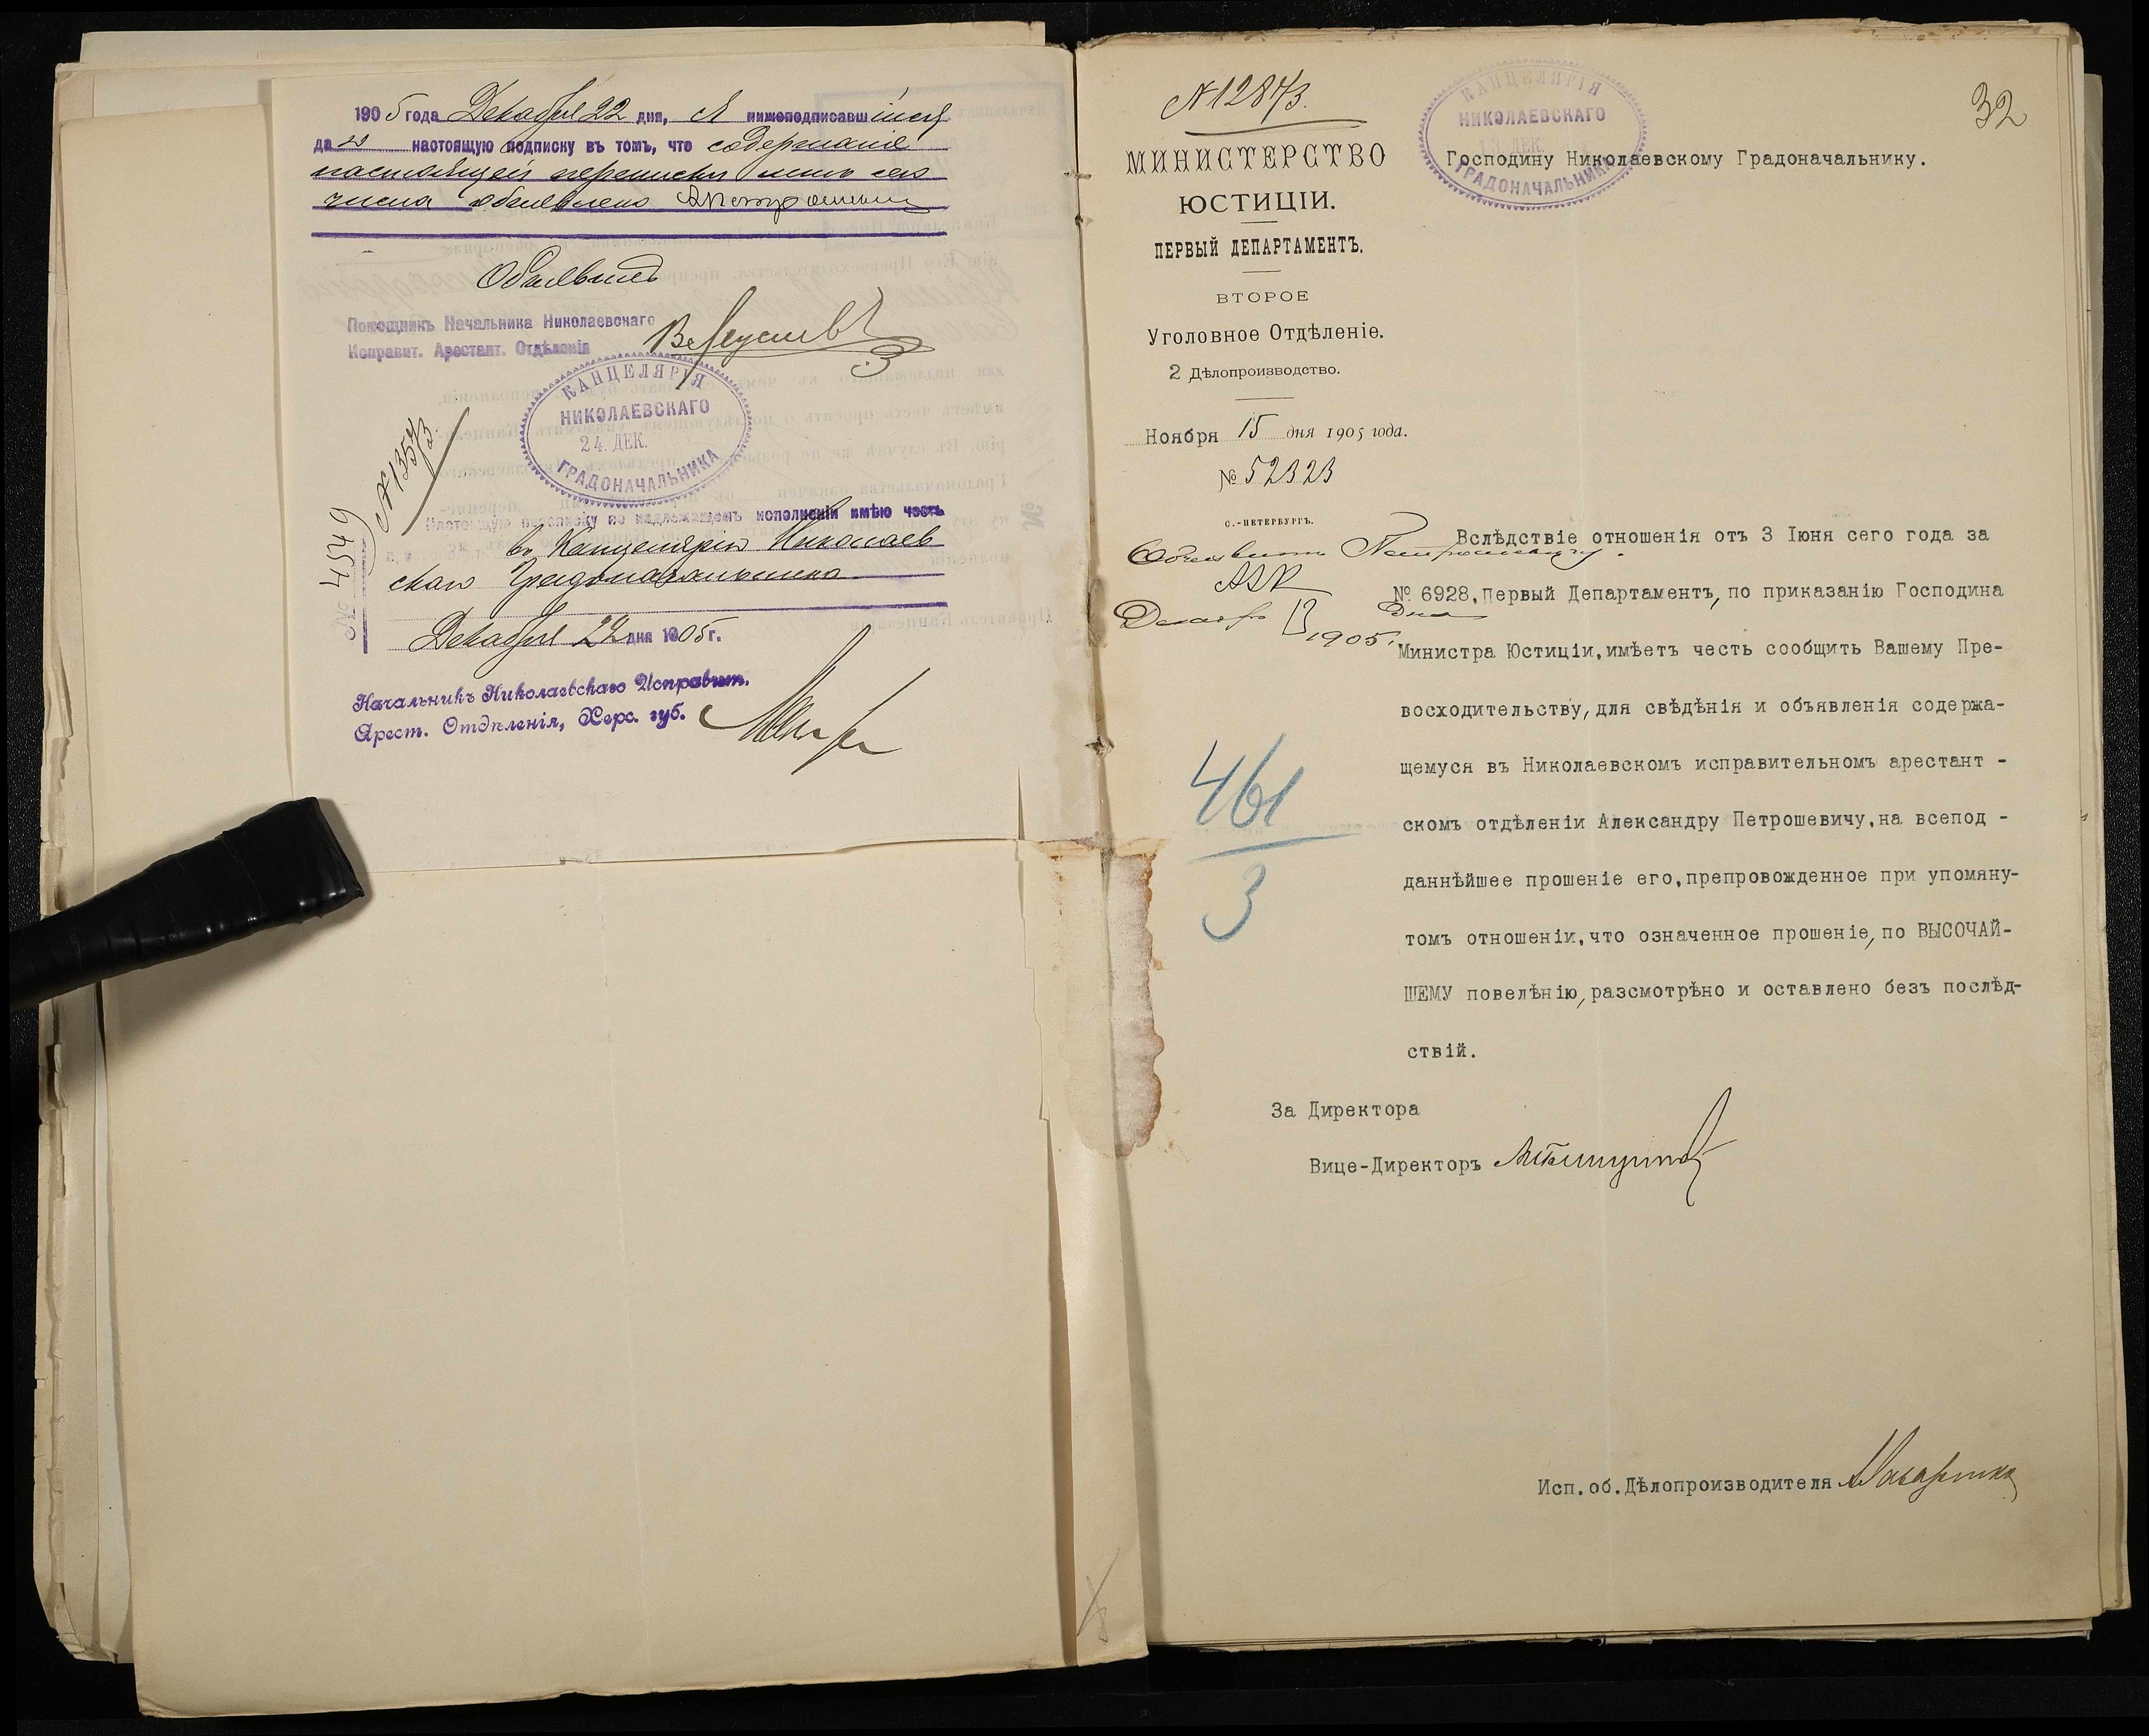 1905 года Декабря 22 дня, Я нижеподписавшійся
далъ настоящую подписку въ томъ, что содержаніе
настоящей переписки мнѣ сего
числа объявлено АПетрошевичъ
Объявилъ
Помощникъ Начальника Николаевскаго
Исправит. Арестант. Отдѣленія
КАНЦЕЛЯРІЯ
НИКОЛАЕВСКАГО
24. ДЕК.
ГРАДОНАЧАЛЬНИКА
№ 4549
Настоящую переписку по надлежащемъ исполненіи имѣю честь
въ Канцелярію Николаев
скаго Градоначальника
Декабря 22 дня 1905 г.
Начальникъ Николаевскаго Исправит.
Арест. Отдѣленія, Херс. губ.
N 12843.
32
КАНЦЕЛЯРІЯ
НИКОЛАЕВСКАГО
13. ДЕК.
ГРАДОНАЧАЛЬНИКА
МИНИСТЕРСТВО
ЮСТИЦІИ.
ПЕРВЫЙ ДЕПАРТАМЕНТЪ.
ВТОРОЕ
Уголовное Отдѣленіе.
2 Дѣлопроизводство.
Ноября 15 дня 1905 года.
№ 52323
С.-ПЕТЕРБУРГЪ.
Объявить Петрошевичу.
Декабр 13 дня
1905.
461
3
Господину Николаевскому Градоначальнику.
Вслѣдствіе отношенія отъ 3 Іюня сего года за
№ 6928, Первый Департаментъ, по приказанію Господина
Министра Юстиціи, имѣетъ честь сообщить Вашему Пре-
восходительству, для свѣдѣнія и объявленія содержа-
щемуся въ Николаевскомъ исправительномъ арестант -
скомъ отдѣленіи Александру Петрошевичу, на всепод -
даннѣйшее прошеніе его, препровожденное при упомяну-
томъ отношеніи, что означенное прошеніе, по ВЫСОЧАЙ-
ШЕМУ повелѣнію, разсмотрѣно и оставлено безъ послѣд-
ствій.
За Директора
Вице-Директоръ
Исп. об. Дѣлопроизводителя